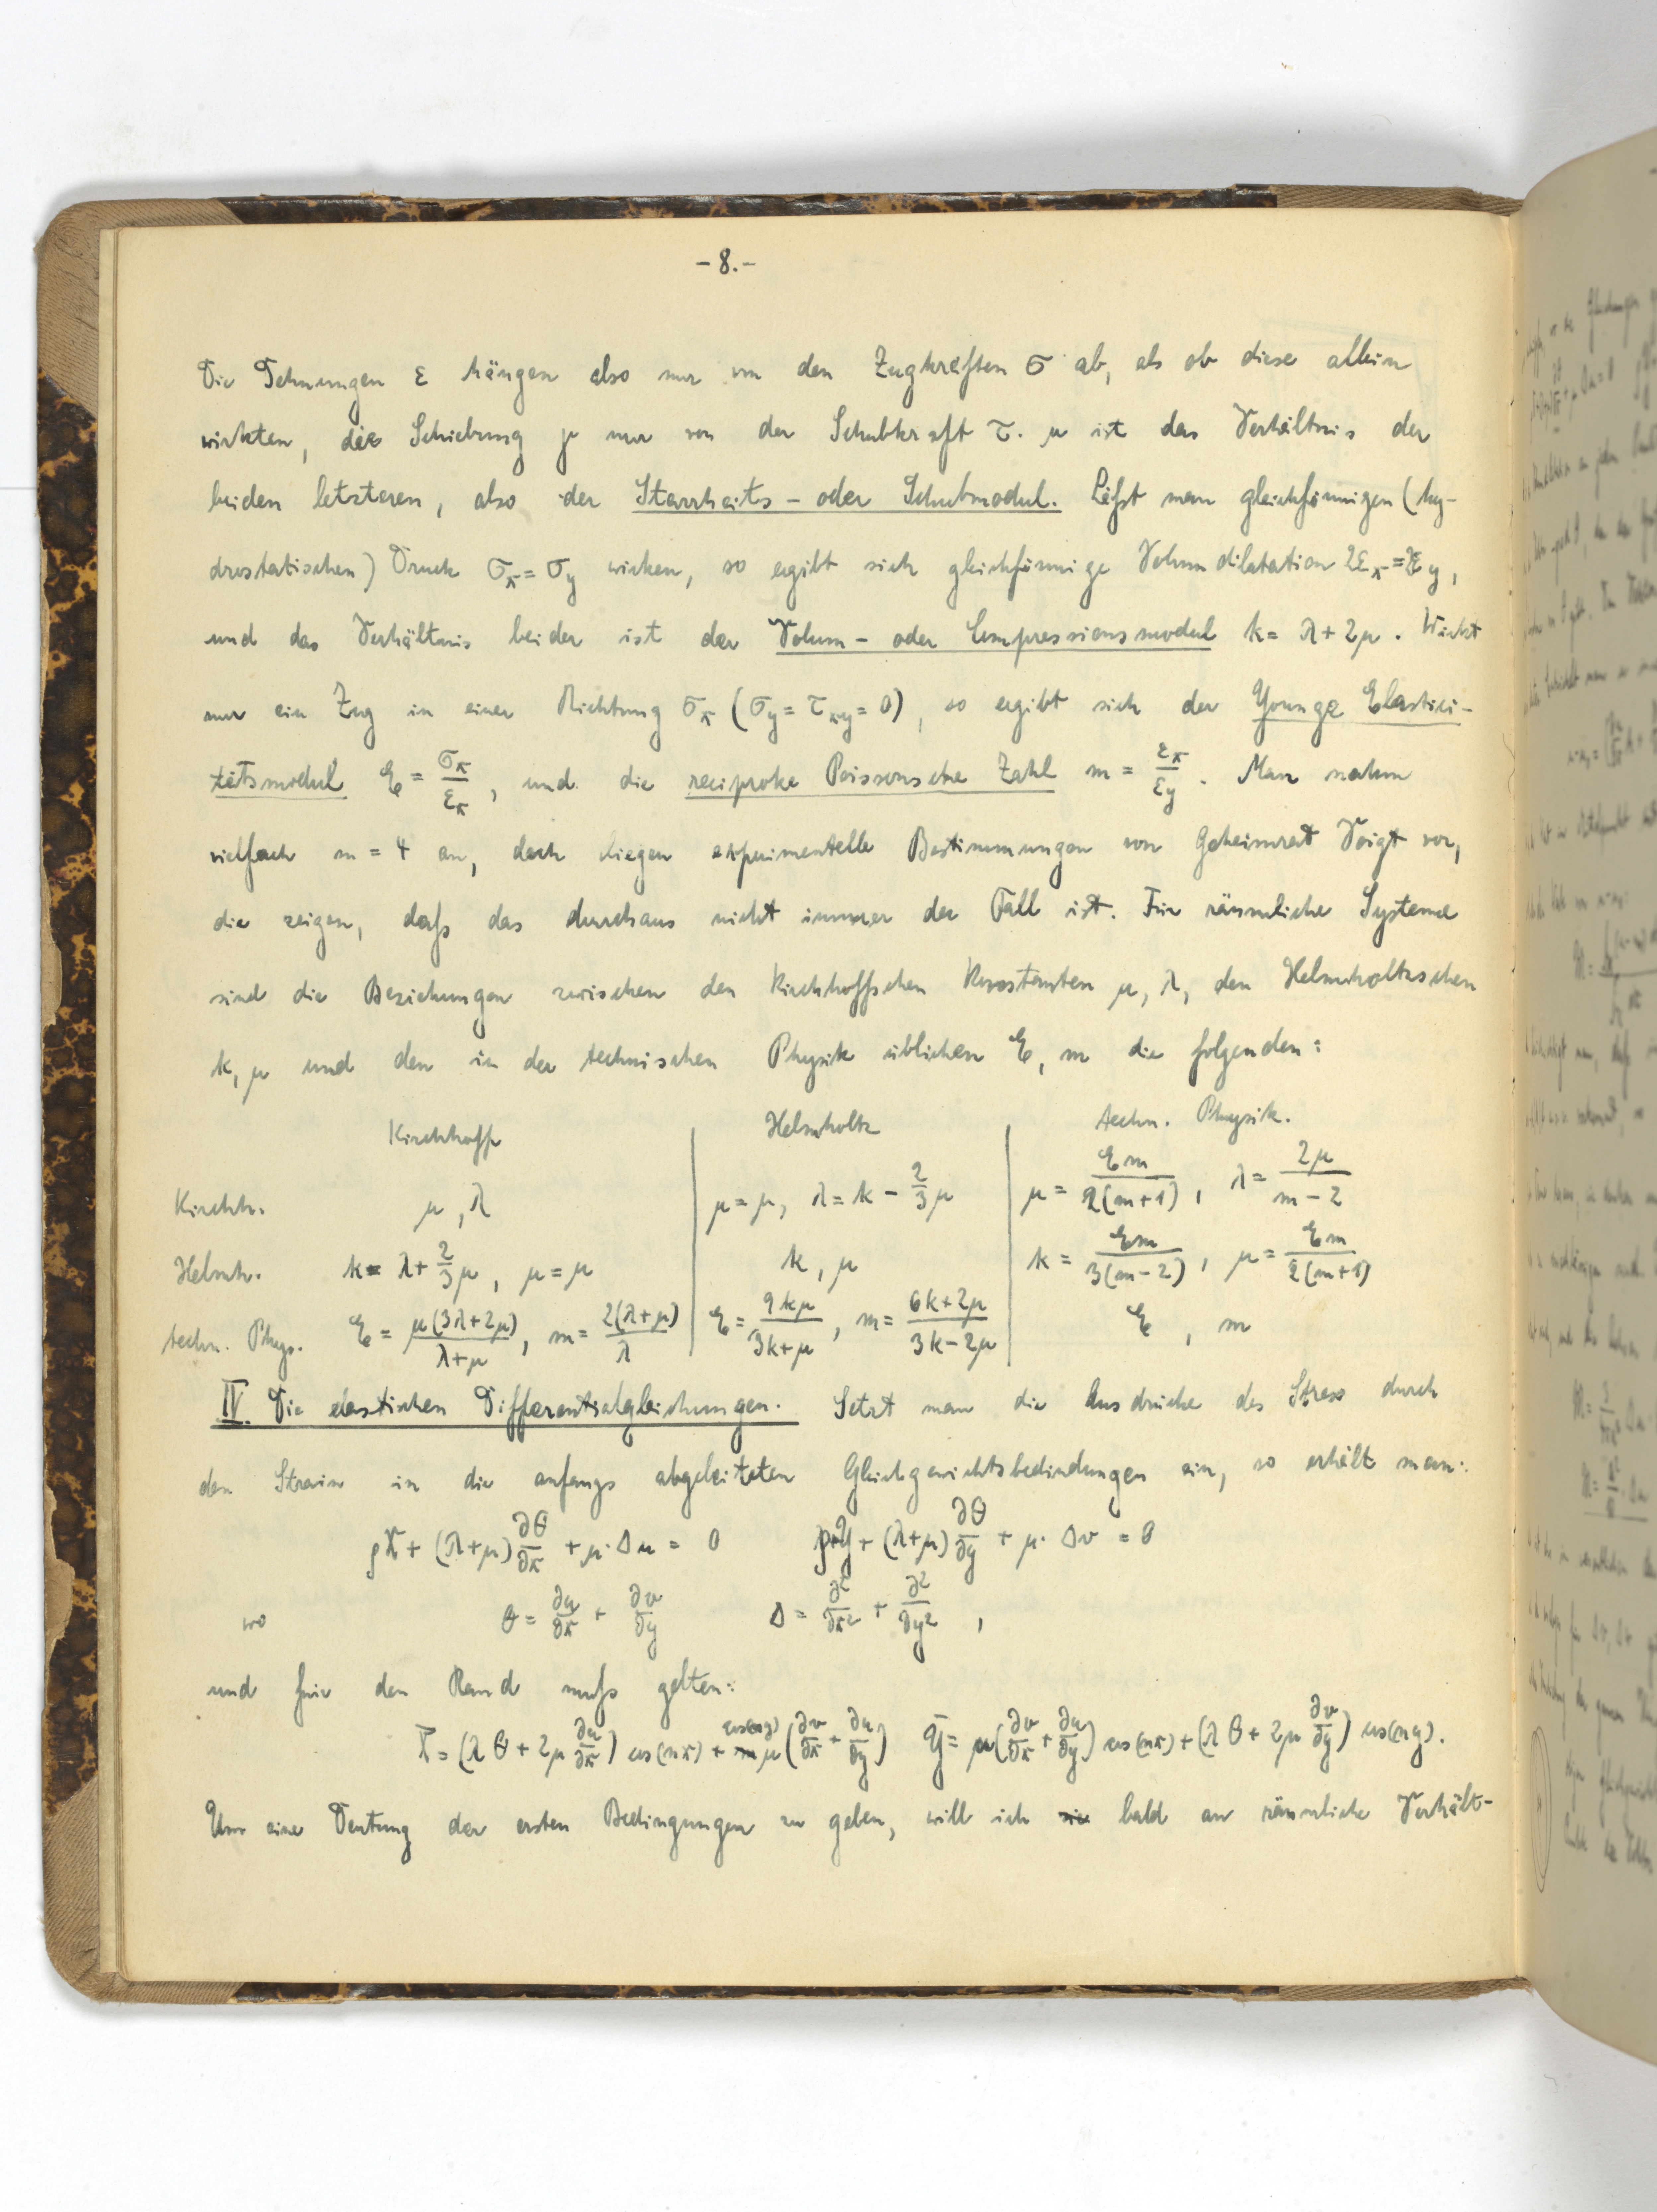 - 8. -
Die Dehnungen ε hängen also nur von den Zugkräften σ ab, als ob diese allein
wirkten, die Schiebung γ nur von der Schubkraft τ. μ ist das Verhältnis der
beiden letzteren, also der Starrheits - oder Schubmodul. Läßt man gleichförmigen (hy-
drostatischen) Druck σx = σy wirken, so ergibt sich gleichförmige Volumdilatation 2εx = 2εy,
und das Verhältnis beider ist der Volum - oder Compressionsmodul k = λ + 2μ. Wirkt
nur ein Zug in einer Richtung σx (σy = τxy = 0), so ergibt sich der Younge Elastici-
tätsmodul E = σx/εx, und die reciproke Poissonsche Zahl m = εx/εy. Man nahm
vielfach m = 4 an, doch liegen experimentelle Bestimmungen von Geheimrat Voigt vor,
die zeigen, daß das durchaus nicht immer der Fall ist. Für räumliche Systeme
sind die Beziehungen zwischen den Kirchhoffschen Konstanten μ, λ, den Helmholtzschen
k, μ und den in der technischen Physik üblichen E, m die folgenden:
Kirchhoff Helmholtz techn. Physik.
Kirchh. μ, λ μ = μ, λ = k - 2/3 μ μ = Em/2(m+1), λ = 2μ/m-2
Helmh. k = λ + 2/3 μ, μ = μ k, μ k = Em/3(m-2), μ = Em/2(m+1)
techn. Phys. E = μ(3λ+2μ)/λ+μ, m = 2(λ+μ)/λ E = 9kμ/3k+μ, m = 6k+2μ/3k-2μ E, m
IV. Die elastischen Differentialgleichungen. Setzt man die Ausdrücke des Stress durch
den Strain in die anfangs abgeleiteten Gleichgewichtsbedindungen ein, so erhält man:
ρX + (λ+μ) ∂θ/∂x + μ·Δu = 0 ρY + (λ+μ) ∂θ/∂y + μ·Δv = 0
wo θ = ∂u/∂x + ∂v/∂y Δ = ∂²/∂x² + ∂²/∂y²,
und für den Rand muß gelten:
X̄ = (λθ + 2μ ∂u/∂x) cos(nx) + cos(ny) μ(∂v/∂x + ∂u/∂y) Ȳ = μ(∂v/∂x + ∂u/∂y) cos(nx) + (λθ + 2μ ∂v/∂y) cos(ny).
Um eine Deutung der ersten Bedingungen zu geben, will ich sie bald an räumliche Verhält-